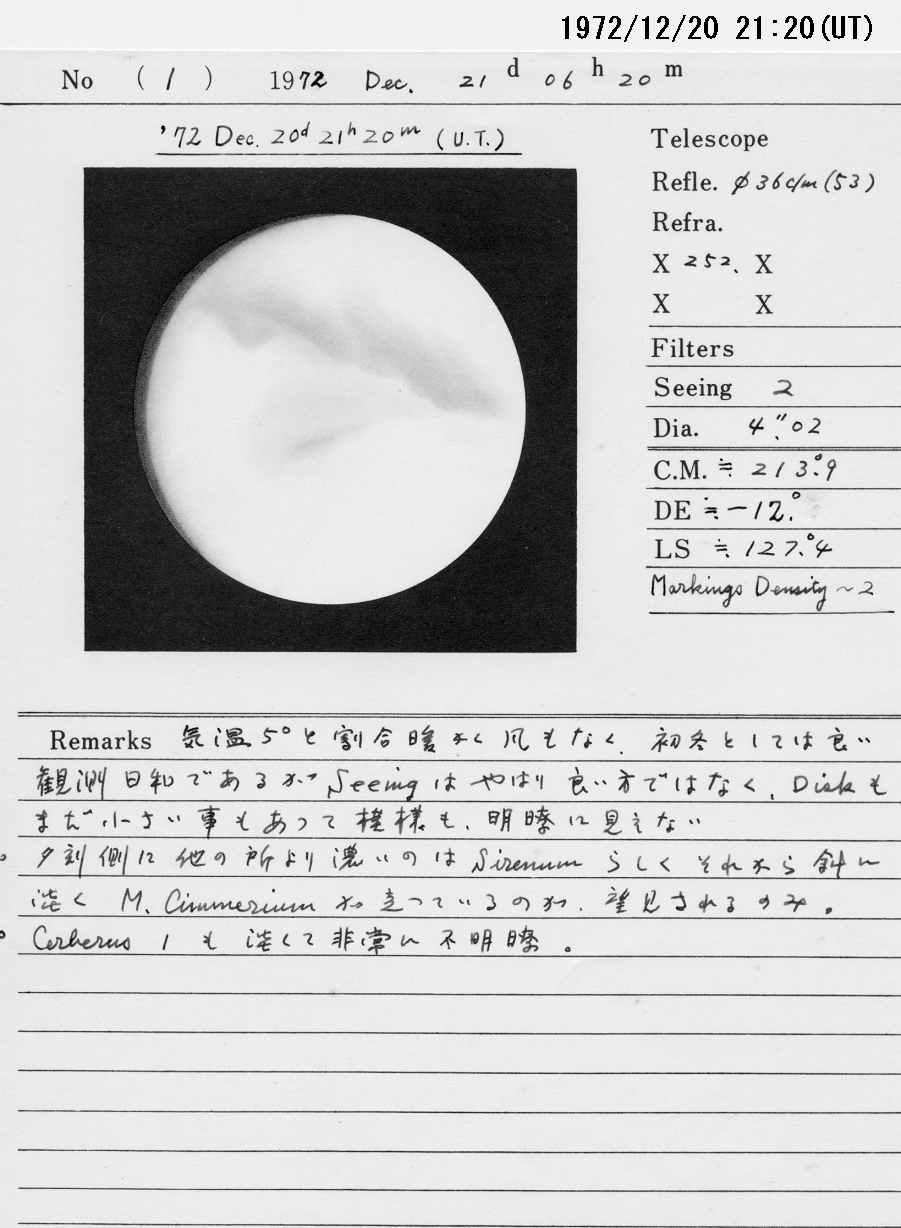 1972/12/20 21:20(UT)
No (1) 1972 Dec. 21 d 06 h 20 m
'72 Dec. 20d 21h 20m (U.T.)
Telescope
Refle. φ36c/m(53)
Refra.
X 252. X
X X
Filters
Seeing 2
Dia. 4".02
C.M. ≒ 213°.9
DE ≒ -12.°
LS ≒ 127.°4
Markings Density ~2
Remarks 気温5°と割合暖かく風もなく、初冬としては良い
観測日和であるが Seeingはやはり良い方ではなく、Diskも
まだ小さい事もあって模様も、明瞭に見えない
。夕刻側に他の所より濃いのはSirenumらしくそれから斜に
淡く M. Cimmeriumが走っているのが、望見されるのみ。
。Cerberus 1も淡くて非常に不明瞭。